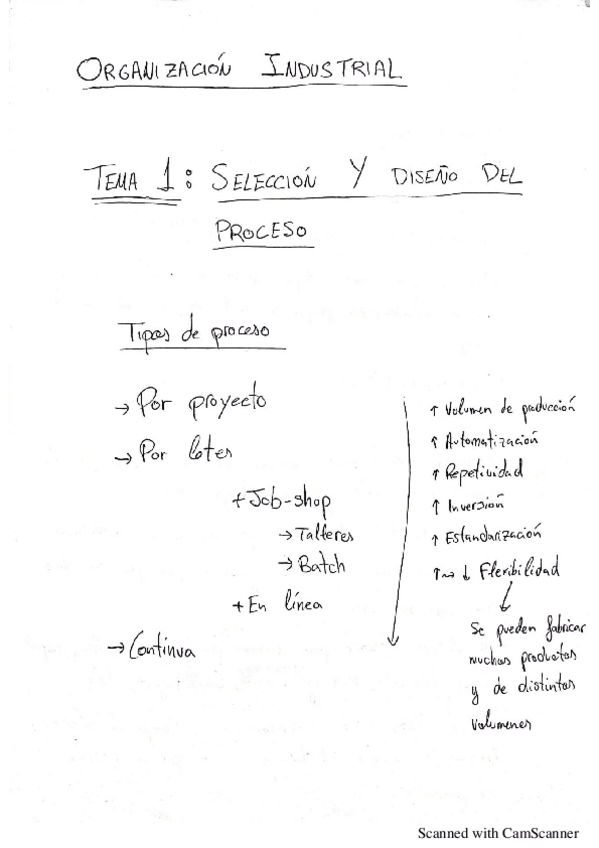 ORGANIZACIÓN INDUSTRIAL
TEMA 1: SELECCIÓN Y DISEÑO DEL
PROCESO
Tipos de proceso
→ Por proyecto
→ Por lotes
+ Job-shop
→ Talleres
→ Batch
+ En línea
→ Continua
↑ Volumen de producción
↑ Automatización
↑ Repetividad
↑ Inversión
↑ Estandarización
↑→ ↓ Flexibilidad
Se pueden fabricar
muchos productos
y de distintos
volumenes
Scanned with CamScanner